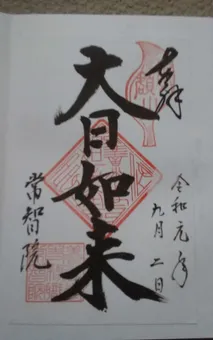 奉拝
大日如来
令和元年
九月二日
常智院